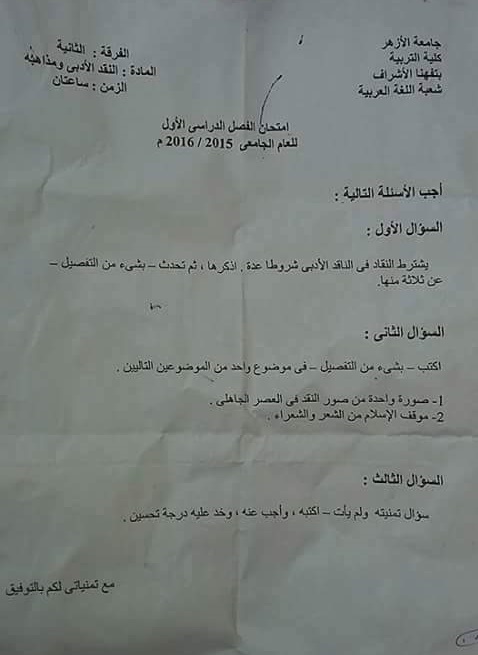 جامعة الأزهر
كلية التربية
بتفهنا الأشراف
شعبة اللغة العربية
الفرقة : الثانية
المادة : النقد الأدبى ومذاهبه
الزمن : ساعتان
امتحان الفصل الدراسى الأول
للعام الجامعى 2015 / 2016 م
أجب الأسئلة التالية :
السؤال الأول :
يشترط النقاد فى الناقد الأدبى شروطا عدة . اذكرها ، ثم تحدث – بشىء من التفصيل –
عن ثلاثة منها.
السؤال الثانى :
اكتب – بشىء من التفصيل – فى موضوع واحد من الموضوعين التاليين .
1- صورة واحدة من صور النقد فى العصر الجاهلى .
2- موقف الإسلام من الشعر والشعراء .
السؤال الثالث :
سؤال تمنيته ولم يأت – اكتبه ، وأجب عنه ، وخد عليه درجة تحسين .
مع تمنياتى لكم بالتوفيق